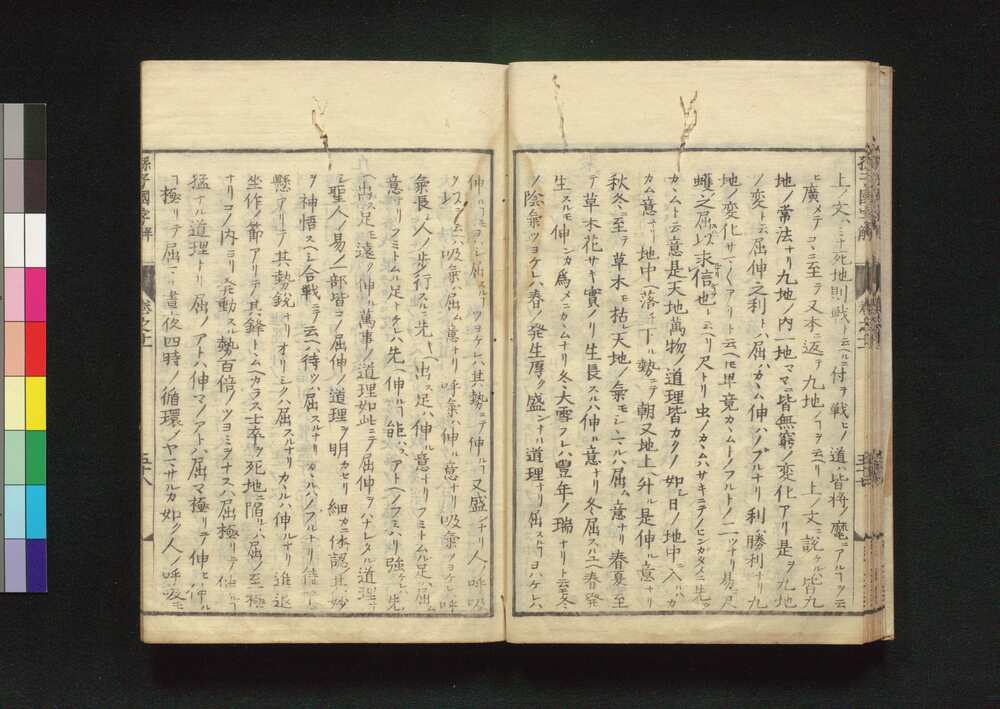 上ノ文ハ死地則戦ト云ヘルニ付テ戦ヒノ道ハ皆將ノ麾ニアルコトヲ云
ヒ廣メテコヽニ至テ又本ニ返テ九地ノコトヲ云ヘリ上ノ文ニ説ケル皆九
地ノ常法ナリ九地ノ内一地マヽニ皆無窮ノ変化アリ是ヲ九地
ノ変ト云屈伸之利トハ屈ハカヽム伸ハノブルナリ利ハ勝利ナリ九
地ノ変化サマ〱アリト云ヘトモ畢竟カヽムトノフルトノ二ツナリ易ニ尺
蠖之屈以求信也ト云ヘリ尺トリ虫ノカヽムハサキニテノビンガタメニ先ツ
カヽムト云意是天地萬物ノ道理皆カクノ如シ日ノ地中ニ入ハカ
カム意ナリ地中ヘ落チ下ル勢ニテ朝又地上ヘ升ル是伸ル意ナリ
秋冬ニ至テ草木モ枯レ天地ノ氣モシマルハ屈ム意ナリ春夏ニ至
テ草木花サキ實ノリ生長スルハ伸ル意ナリ冬屈スルハ春發
生スルモ伸ンガ為メニカヽムナリ冬大雪フレハ豊年ノ瑞ナリト云モ冬
ノ陰氣ツヨケレハ春ノ発生厚ク盛ンナル道理ナリ屈スルコトヨハケレハ
伸ルコトモヨハシ屈スルコトツヨケレハ其勢ニテ伸ルコト又盛ンナリ人ノ呼吸
吸氣ハ屈ム意ナリ呼氣ハ伸ル意ナリ吸氣ツヨケレハ呼
氣長シ人ノ歩行スルニ先ヘ出ス足ハ伸ル意ナリフミトムル足ハ屈ム
意ナリフミトムル足ナケレハ先ヘ伸ルコト能ハスアトヘノフミハリ強ケレハ先
ヘ出ス足モ遠ク伸ル萬事ノ道理如此ニテ屈伸ヲハナレタル道理ナ
シ聖人ノ易ノ一部皆コノ屈伸ノ道理ヲ明カセリ細カニ体認其妙
ヲ神悟スヘシ合戦ニテ云ヘハ待ツハ屈スルナリカヽルハノフルナリ
懸アリテ其勢鋭ナリオリシクハ屈スルナリカヽルハ伸ルナリ進退
坐作ノ節アリテ其鋒トヽムヘカラス士卒ヲ死地ニ陥ルハ屈ノ至極
ナリコノ内ヨリ発動スル勢百倍ノツヨミヲナスハ屈極リテ伸ルコト
猛ナル道理ナリ屈ノアトハ伸マノアトハ屈マ極リテ伸ヒ
コト極リテ屈ミ晝夜四時ノ循環ノヤマサルカ如ク人ノ呼吸モ
孫子國字解
巻之十一
五十八